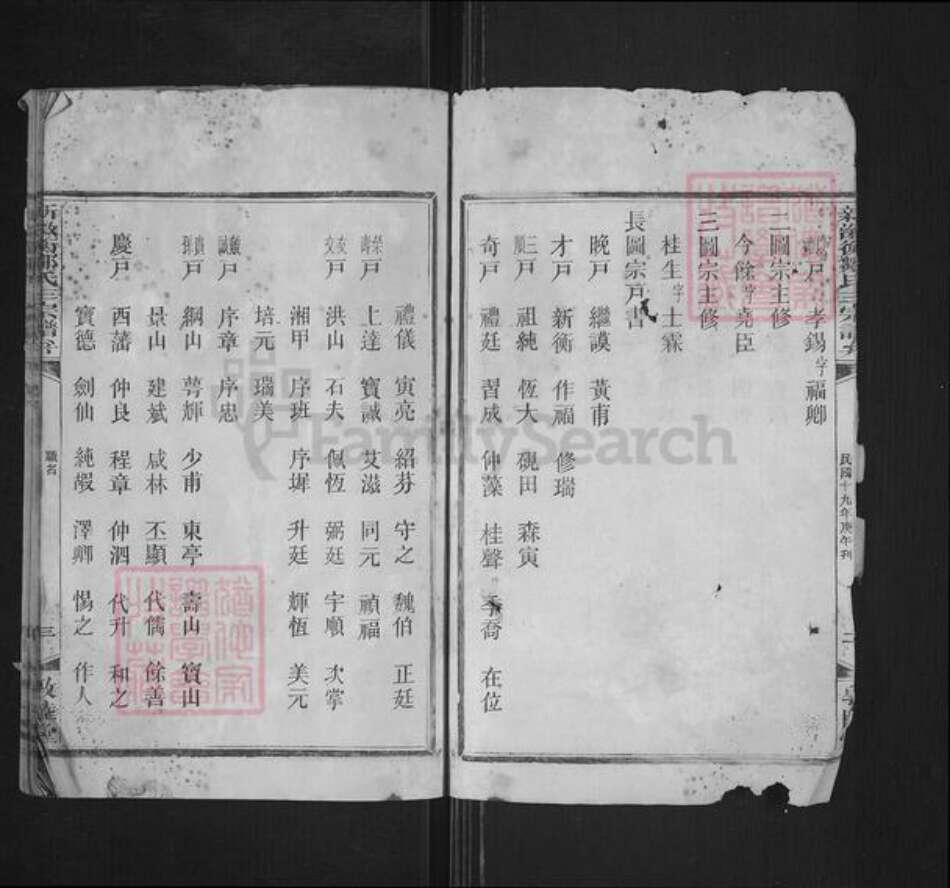 戶 孝錫字福卿
二圖宗主修
今餘字堯臣
三圖宗主修
桂生字士霖
長圖宗戶書
晚戶 繼謨 黃甫
才戶 新衡 作福 修瑞
三順戶 祖純 恆大 硯田 森寅
奇戶 禮廷 習成 仲藻 桂聲 喬 在位
民國十九年庚午刊
二
禮儀 寅亮 紹芬 守之 魏伯 正廷
榮壽戶 上達 寶誠 艾滋 同元 禎福
友文戶 洪山 石夫 佩恆 弼廷 宇順 次掌
湘甲 序班 序墀 升廷 輝恆 美元
培元 瑞美
戶 序章 序忠
貴戶 綱山 萼輝 少甫 東亭 壽山 寶山
景山 建斌 咸林 丕顯 代儒 餘善
慶戶 西藩 仲良 程章 仲泗 代升 和之
寶德 劍仙 純嘏 澤卿 惕之 作人
職名
三
FamilySearch